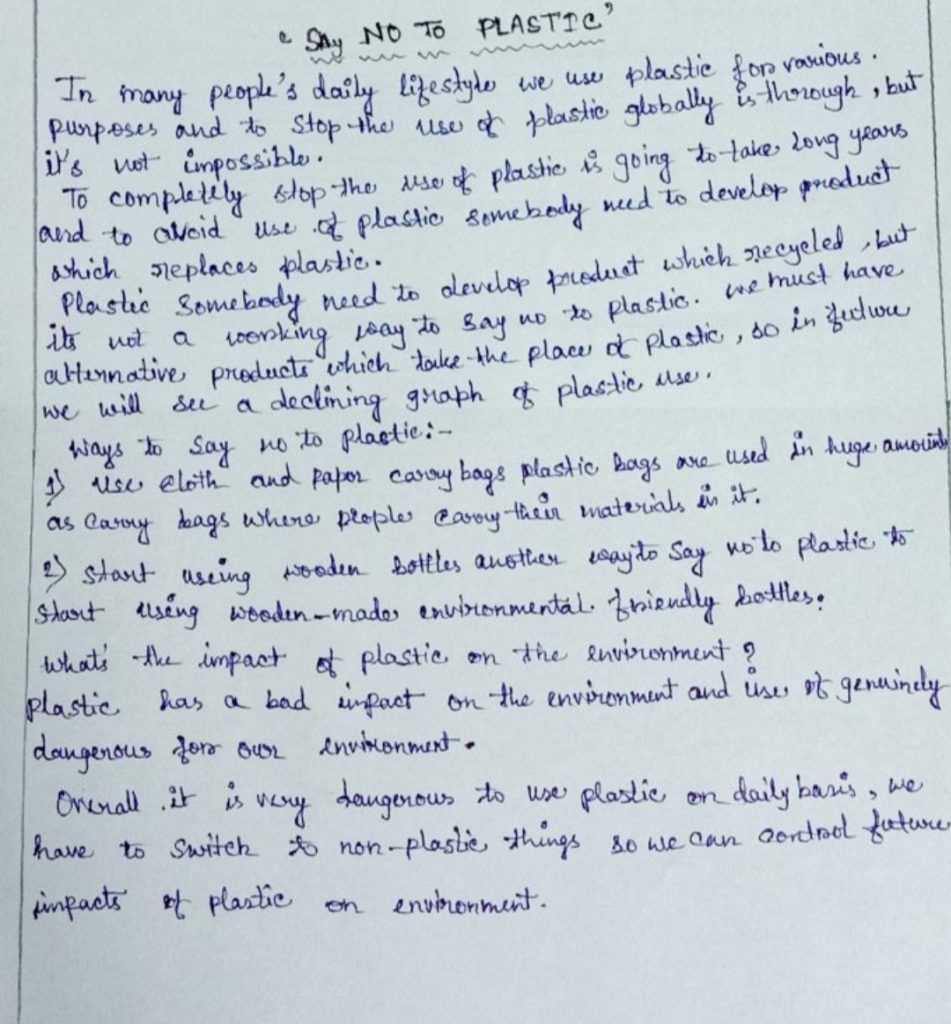 "SAy NO TO PLASTIC"
In many people's daily lifestyle we use plastic for various.
purposes and to stop the use of plastic globally is thorough, but
it's not impossible.
To completely stop the use of plastic is going to take long years
and to avoid use of plastic somebody need to develop product
which replaces plastic.
Plastic somebody need to develop product which recycled, but
its not a working way to say no to plastic. we must have
alternative products which take the place of plastic, so in future
we will see a declining graph of plastic use.
Ways to say no to plastic:-
1) use cloth and paper carry bags plastic bags are used in huge amounts
as carry bags where people carry their materials in it.
2) start useing wooden bottles another way to say no to plastic to
start using wooden-made environmental friendly bottles.
What's the impact of plastic on the environment?
plastic has a bad impact on the environment and use of genuinely
dangerous for our environment.
Overall it is very dangerous to use plastic on daily basis, we
have to switch to non-plastic things so we can control future
impacts of plastic on environment.